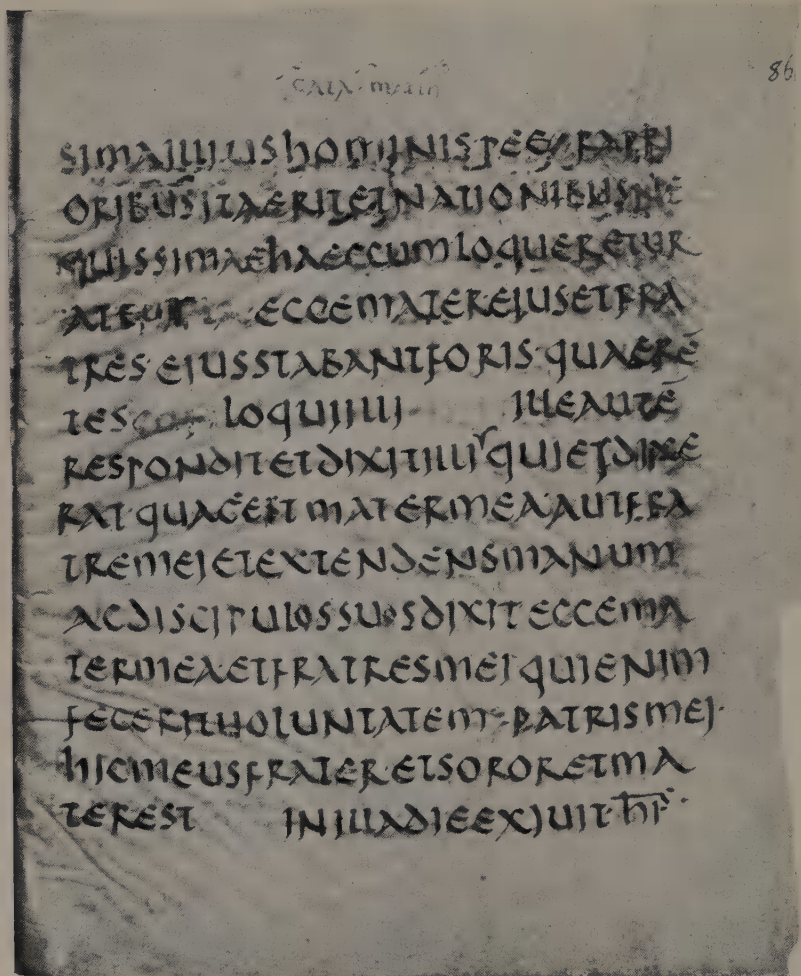 86
SIMAILLIUShOMINIS
ORIBUSITAERITETNATIONIBUSNE
QUISSIMAEhAECCUMLOQUERETUR
ECCEMATEREIUSETFRA
TRES·EIUSSTABANTFORIS·QUAERĒ
TES LOQUIILLI ILLEAUTĒ
RESPONDITETDIXITILLIQUIETDIXE
RAT·QUAEESTMATERMEA·AUTFRA
TREMEIETEXTENDENSMANUM
ACDISCIPULOSSUOSDIXITECCEMA
TERMEA·ETFRATRESMEI·QUIENIM
FECERITUOLUNTATEMPATRISMEI·
hICMEUSFRATER·ETSORORETMA
TEREST INILLADIEEXIUIT·